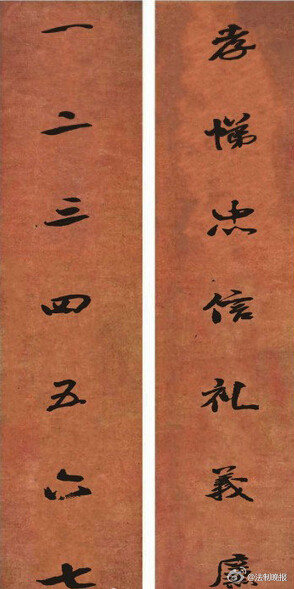 孝悌忠信礼義廉
一二三四五六七
@法制晚报